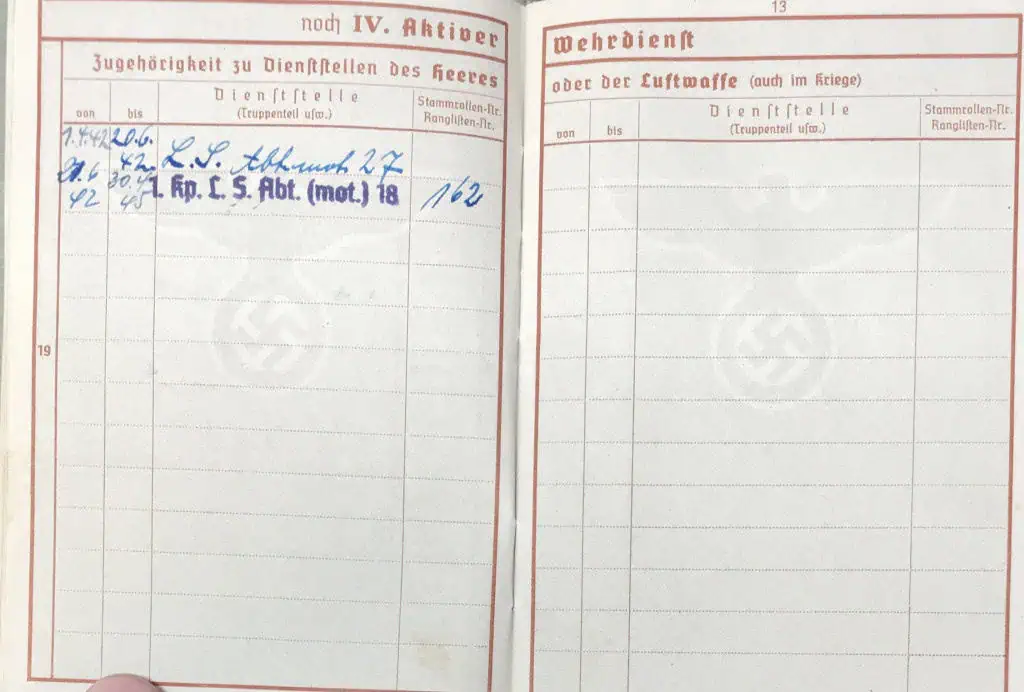 noch IV. Aktiver
Zugehörigkeit zu Dienststellen des Heeres
von
bis
Dienststelle
(Truppenteil usw.)
Stammrollen-Nr.
Ranglisten-Nr.
1.4.42 20.6.42. L.S. Abt. mot 27
21.6.42 30.4.45 1. Kp. L. S. Abt. (mot.) 18 162
19
13
Wehrdienst
oder der Luftwaffe (auch im Kriege)
von
bis
Dienststelle
(Truppenteil usw.)
Stammrollen-Nr.
Ranglisten-Nr.